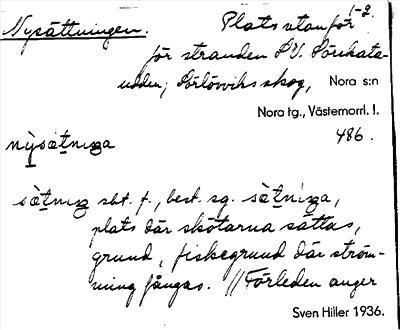 Nysättningen. Plats utanför 1-2.
för stranden SV. Sörikata-
udden; Sörlövviks skog, Nora s:n
Nora tg., Västernorrl. l.
486.
nỳsæ̀tnıŋa
sæ̀tnıŋ sbt. f., best. sg. sæ̀tnìŋa,
plats där skötarna sättas,
grund, fiskegrund där ström-
ming fångas. // Förleden anger
Sven Hiller 1936.